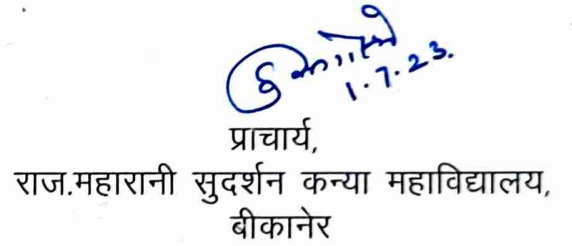 1.7.23.
प्राचार्य,
राज.महारानी सुदर्शन कन्या महाविद्यालय,
बीकानेर